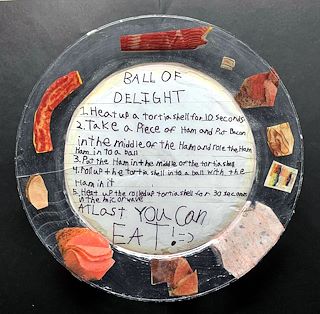 BALL OF
DELIGHT
1. Heat up a tortia shell for 10 seconds
2. Take a Piece of Ham and Put Bacon
in the middle or the Ham and role the Ham
Ham in to a ball
3. Put the Ham in the middle or the tortia shell
4. Roll up the tortia shell in to a ball with the
Ham in it
5. Heat up the rolled up tortia shell for 30 seconds
in the micorwave
At Last YOU Can
EAT! =)